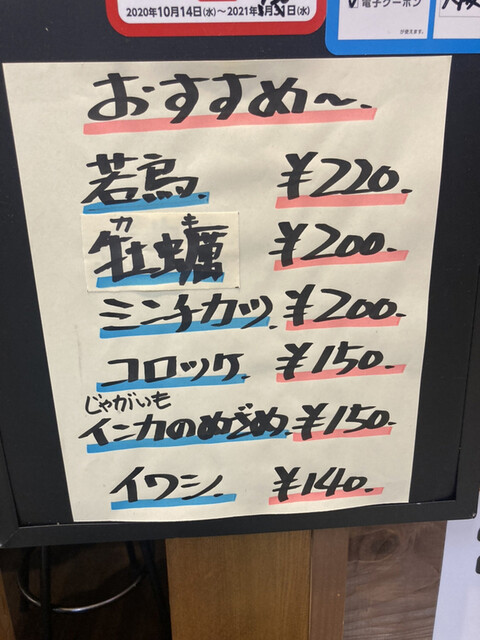 2020年10月14日(水)～2021年3月31日(水)
電子クーポン
が使えます。
おすすめ〜.
若鳥 ¥220.-
カキ
牡蠣 ¥200.-
ミンチカツ ¥200.-
コロッケ ¥150.-
じゃがいも
インカのめざめ ¥150.-
イワシ ¥140.-